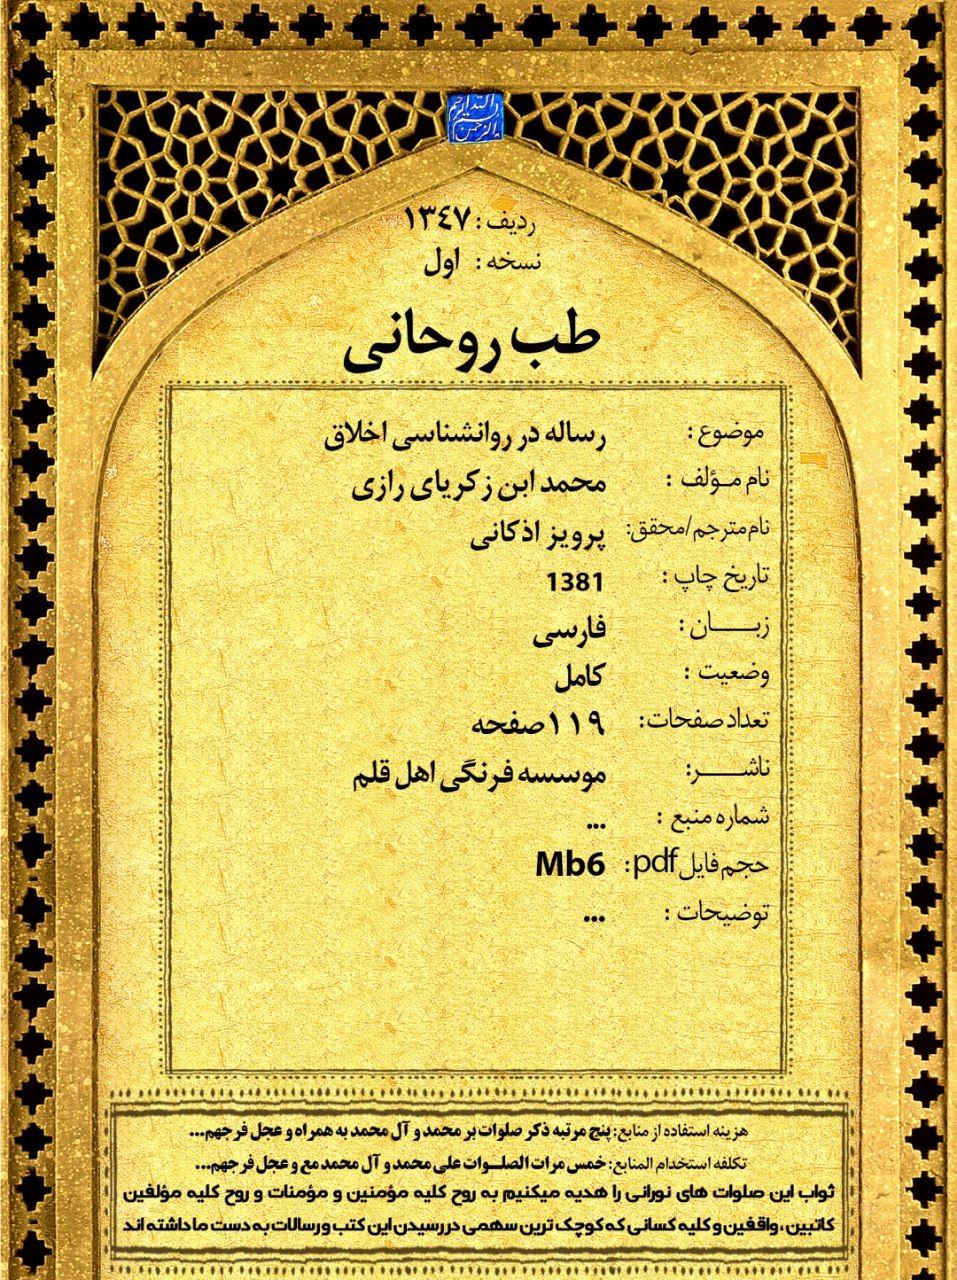 بسم الله الرحمن الرحیم
ردیف : ۱۳۴۷
نسخه : اول
طب روحانی
موضوع : رساله در روانشناسی اخلاق
نام مـؤلف : محمد ابن زکریای رازی
نام مترجم/محقق: پرویز اذکانی
تاریخ چاپ : 1381
زبـــــان : فارسی
وضعیت : کامل
تعداد صفحات: ۱۱۹صفحه
ناشـــــر: موسسه فرنگی اهل قلم
شماره منبع : ...
حجم فایل pdf: Mb6
توضیحات : ...
هزینه استفاده از منابع: پنج مرتبه ذکر صلوات بر محمد و آل محمد به همراه و عجل فرجهم...
تکلفه استخدام المنابع: خمس مرات الصلـوات علی محمد و آل محمد مع و عجل فرجهم...
ثواب این صلوات های نورانی را هدیه میکنیم به روح کلیه مؤمنین و مؤمنات و روح کلیه مؤلفین
کاتبین ، واقفین و کلیه کسانی که کوچک ترین سهمی در رسیدن این کتب و رسالات به دست ما داشته اند